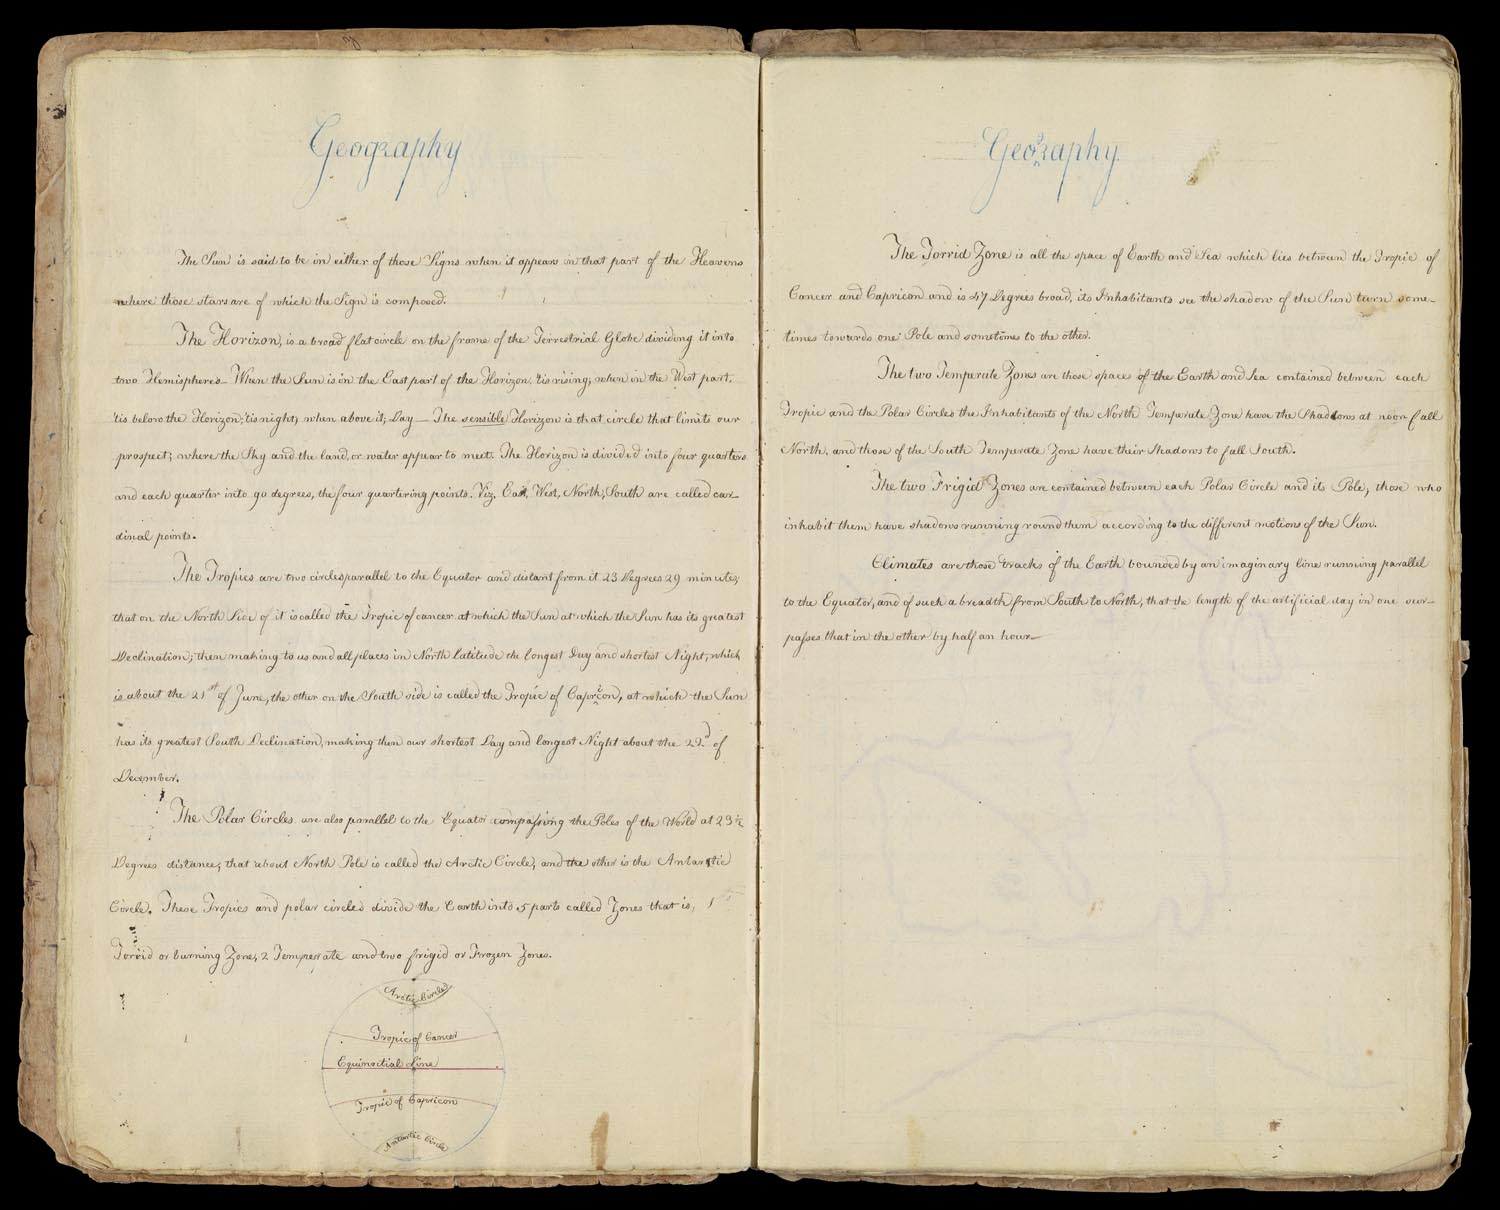 Geography
The Sun is said to be in either of those Signs when it appears in that part of the Heavens
where those stars are of which the Sign is composed.
The Horizon, is a broad flat circle on the frame of the Terrestrial Globe dividing it into
two Hemispheres— When the Sun is in the East part of the Horizon, 'tis rising; when in the West part,
'tis below the Horizon; 'tis night; when above it; Day— The sensible Horizon is that circle that limits our
prospect; where the Sky and the land, or water appear to meet. The Horizon is divided into four quarters
and each quarter into 90 degrees, the four quartering points. Viz, East, West, North, South are called car-
dinal points.
The Tropics are two circles parallel to the Equator and distant from it 23 Degrees 29 minutes;
that on the North Side of it is called the Tropic of cancer at which the Sun at which the Sun has its greatest
Declination; then making to us and all places in North latitude the longest Day and shortest Night, which
is about the 21st of June, the other on the South side is called the Tropic of Capricon, at which the Sun
has its greatest South Declination, making then our shortest Day and longest Night about the 22d of
December.
The Polar Circles are also parallel to the Equator compassing the Poles of the World at 23½
Degrees distance; that about North Pole is called the Arctic Circle, and the other is the Antarctic
Circle. These Tropics and polar circles divide the Earth into 5 parts called Zones that is, 1
Torrid or burning Zone, 2 Temperrate and two frigid or Frozen Zones.
Arctic Circle
Tropic of Cancer
Equinoctial Line
Tropic of Capricon
Antartic Circle
Geography
The Torrid Zone is all the space of Earth and Sea which lies between the Tropic of
Cancer and Capricon and is 47 Degrees broad, its Inhabitants see the shadow of the Sun turn some-
times towards one Pole and sometimes to the other.
The two Temperate Zones are those spaces of the Earth and Sea contained between each
Tropic and the Polar Circles the Inhabitants of the North Temperate Zone have the Shadows at noon fall
North, and those of the South Temperate Zone have their Shadows to fall South.
The two Frigid Zones are contained between each Polar Circle and its Pole, those who
inhabit them have shadows running round them according to the different motions of the Sun.
Climates are those tracks of the Earth bounded by an imaginary line running parallel
to the Equator, and of such a breadth from South to North, that the length of the artificial day in one sur-
passes that in the other by half an hour—